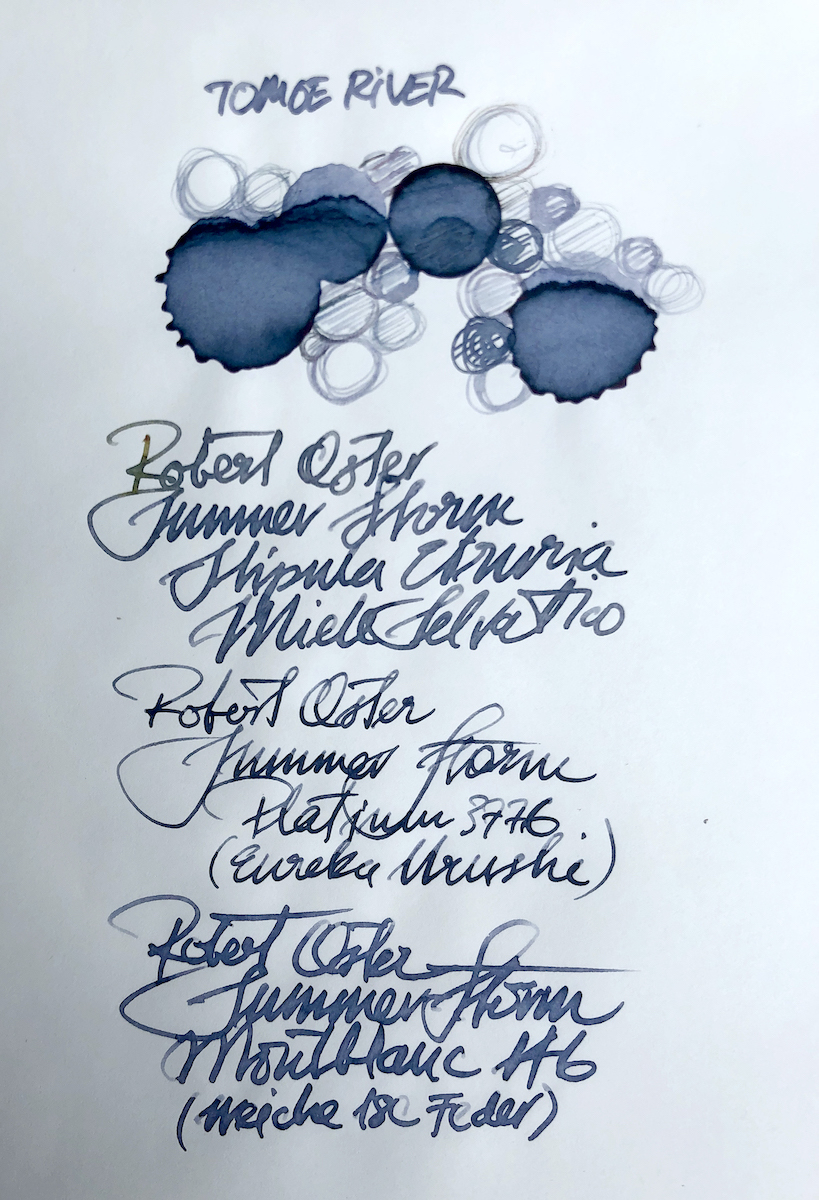 TOMOE RiVER
Robert Oster
Summer Storm
Stipula Etruria
Miele Selvatico
Robert Oster
Summer Storm
Platinum 3776
(Eureka Urushi)
Robert Oster
Summer Storm
Montblanc 146
(Weiche 18c Feder)